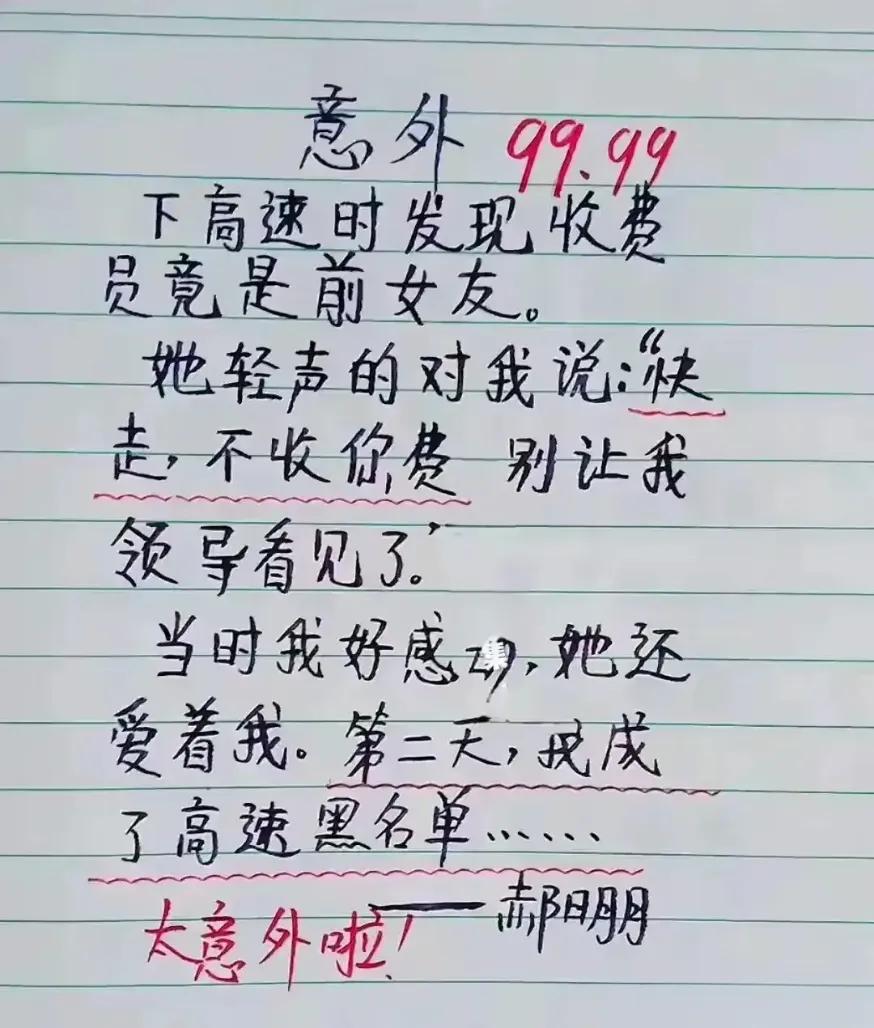 意外 99.99
下高速时发现收费
员竟是前女友。
她轻声的对我说:“快
走,不收你费 别让我
领导看见了。’
当时我好感动,她还
爱着我。第二天,我成
了高速黑名单……
——郝明朋
太意外啦!